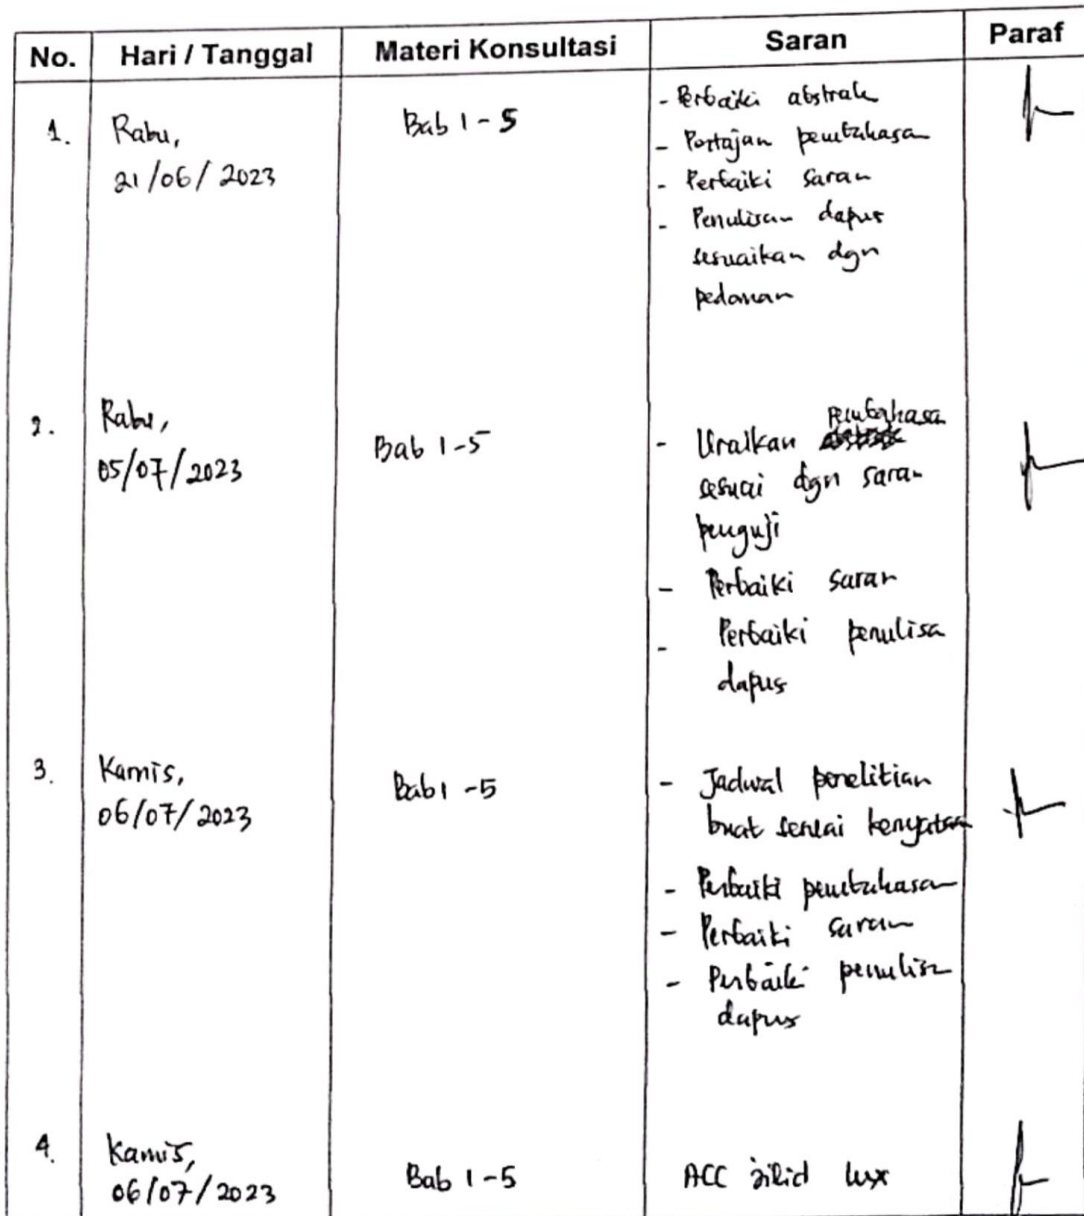 No. Hari / Tanggal Materi Konsultasi Saran Paraf
1. Rabu, Bab 1 - 5 - Perbaiki abstrak
21/06/2023 - Pertajan pembahasan
- Perbaiki saran
- Penulisan dapus
sesuaikan dgn
pedoman
2. Rabu, Bab 1-5 - Uraikan pembahasa
05/07/2023 sesuai dgn saran
penguji
- Perbaiki saran
- Perbaiki penulisa
dapus
3. Kamis, Bab 1 -5 - Jadwal penelitian
06/07/2023 buat sesuai kenyataan
- Perbaiki pembahasan
- Perbaiki saran
- Perbaiki penulisa
dapus
4. Kamis, Bab 1 -5 ACC jilid lux
06/07/2023